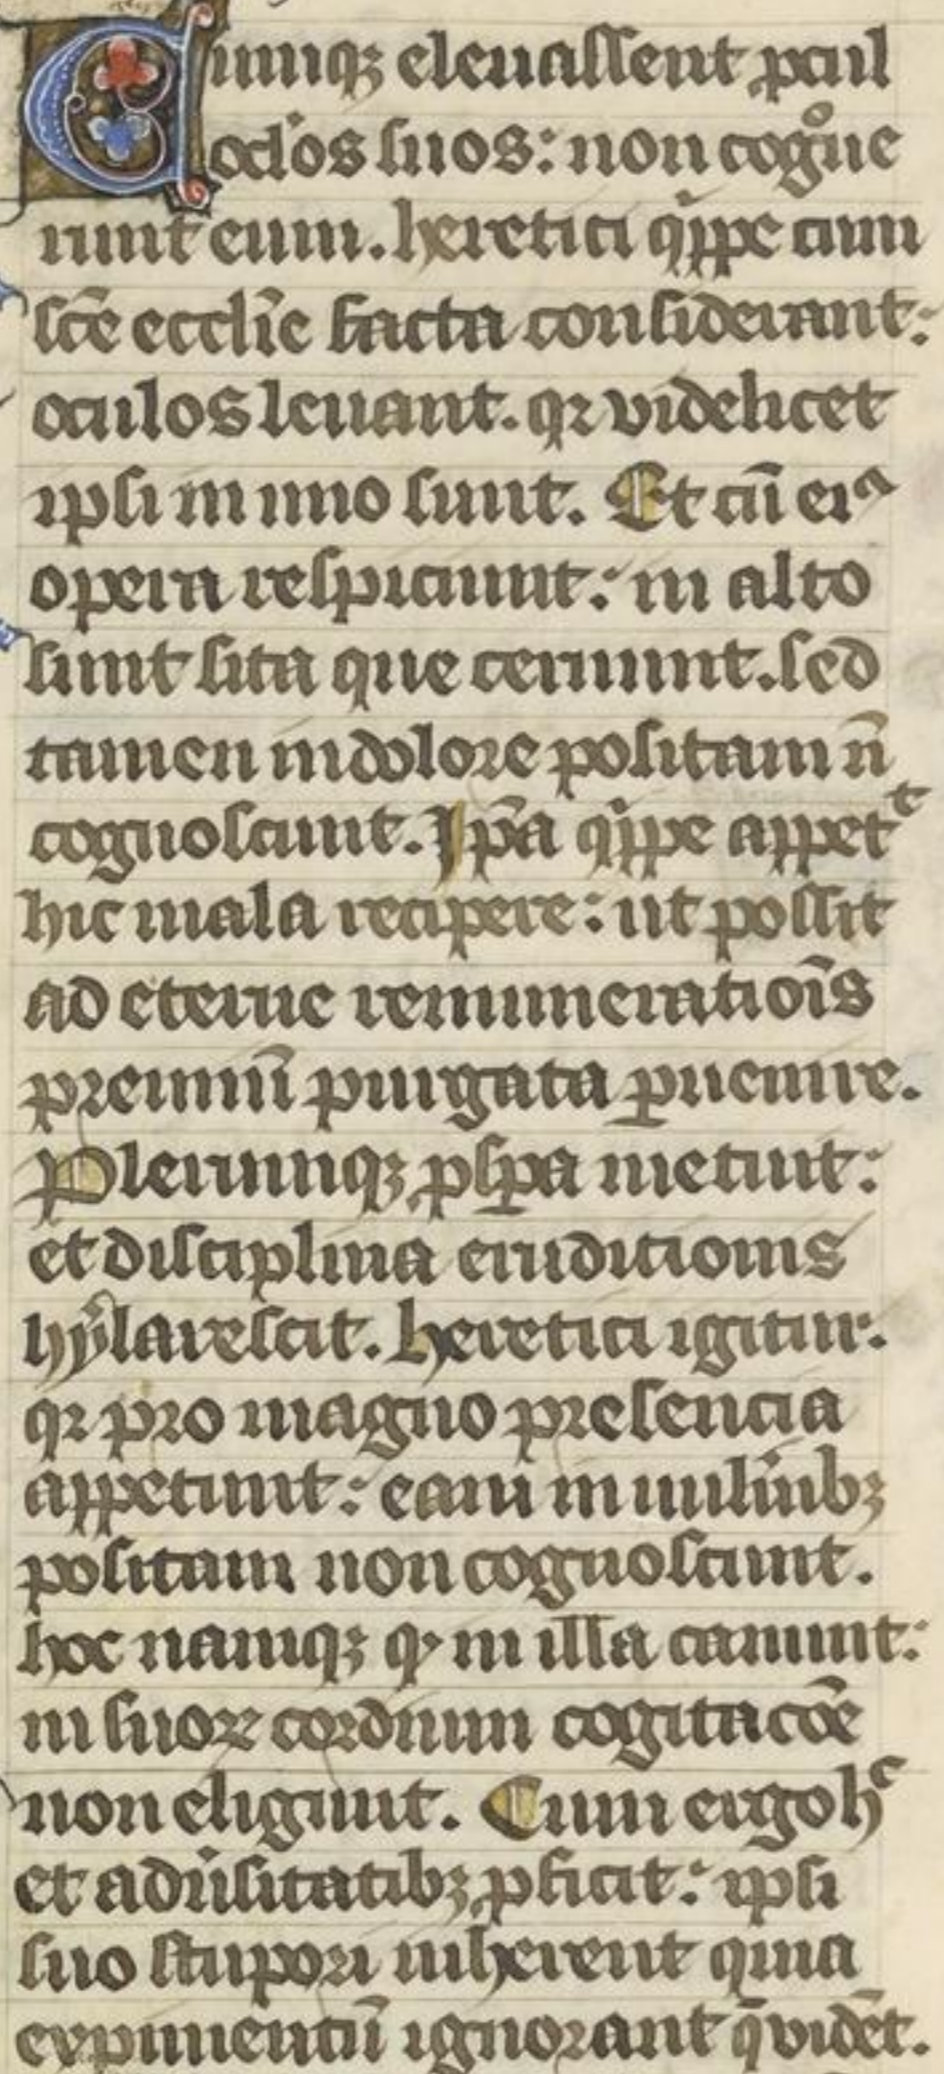 Cumq; eleuassent ꝓcul
oc̄l'os suos: non cogͦue
runt eum. heretici qͥppe cum
sc̄e eccl̄ie facta considerant:
oculos leuant. qꝛ videlicet
ipsi in imo sunt. Et cū eiꝰ
opera respiciunt: in alto
sunt sita que cernunt. sed
tamen in dolore positam n̄
cognoscunt. Ip̄a qͥppe appetᵗ
hic mala recipere: ut possit
ad eterne remuneratiōis
premiū purgata ꝑuenire.
Plerumq; ꝓspa metuit:
et disciplina eruditionis
hẏlarescit. heretici igitur.
qꝛ pro magno presencia
appetunt: eam in uulnīb;
positam non cognoscunt.
hoc namq; qͥ in illa cernunt:
in suoꝝ cordium cogitac̄oe
non eligunt. Cum ergo hᶜ
et adūsitatib; ꝓficit: ipsi
suo stupori inherent quia
expimentū ignorant q̄ vidēt.